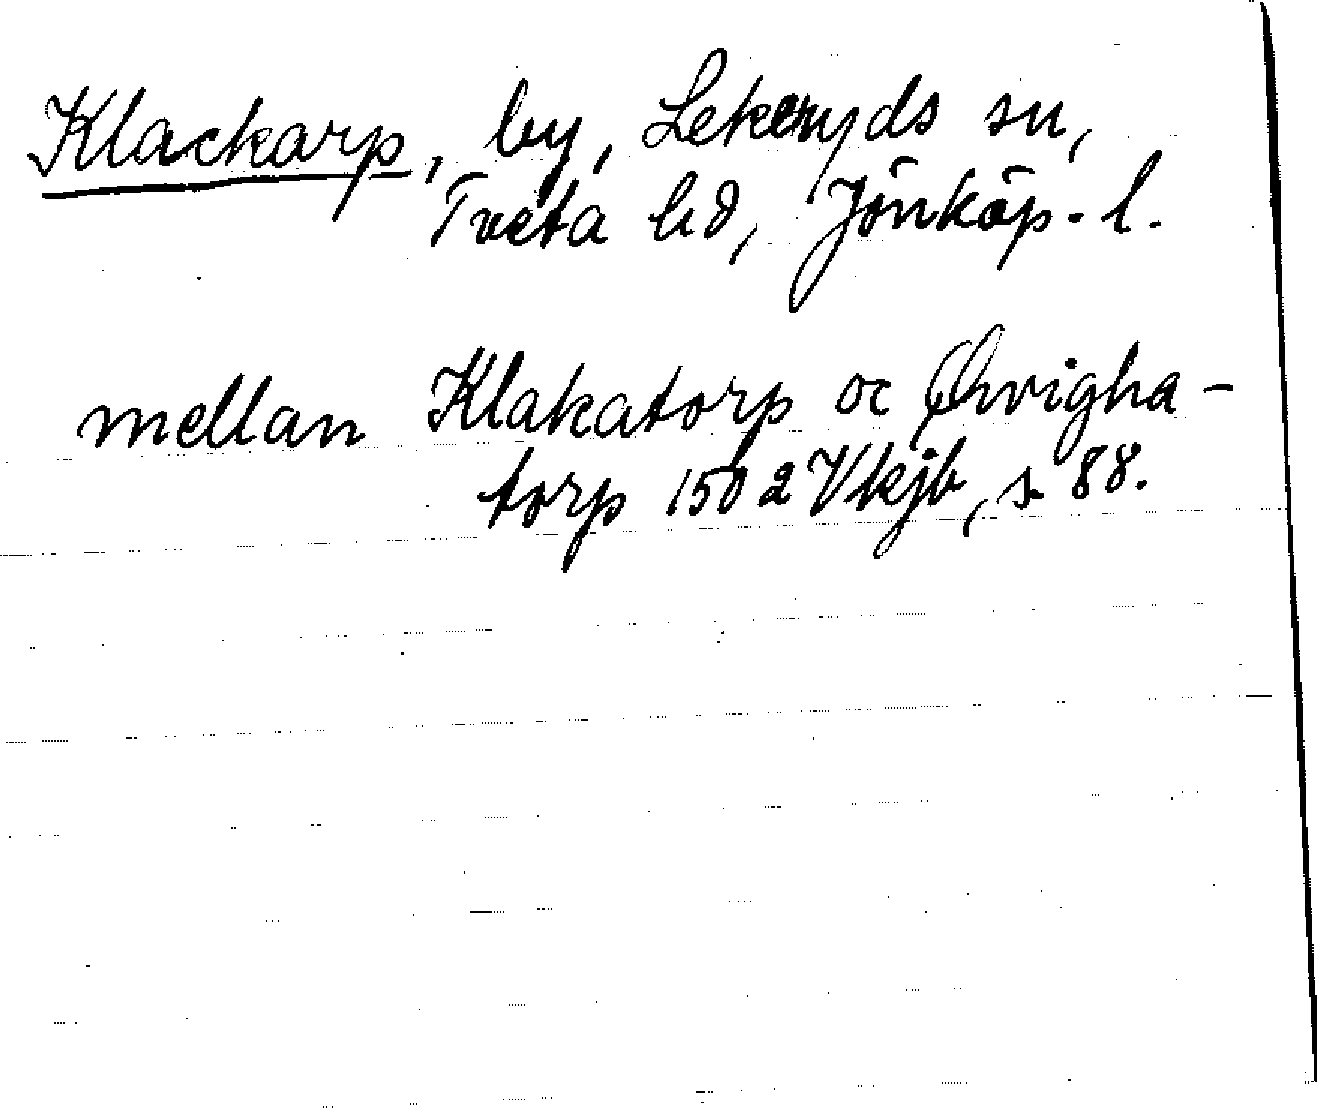 Klackarp, by, Lekeryds sn,
Tveta hd, Jönköp. l.
mellan Klakatorp oc Ørvigha-
torp 1502 Vkjb, s 88.